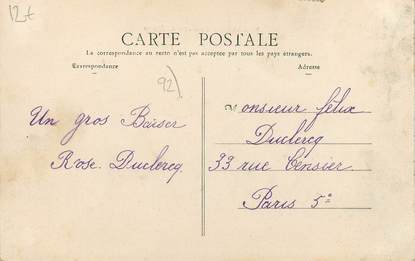 12t
CARTE POSTALE
La correspondance au recto n'est pas acceptée par tous les pays étrangers.
Correspondance
Adresse
92)
Un gros Baiser
Rose Duclercq
Monsieur félix
Duclercq
33 rue Censier
Paris 5e